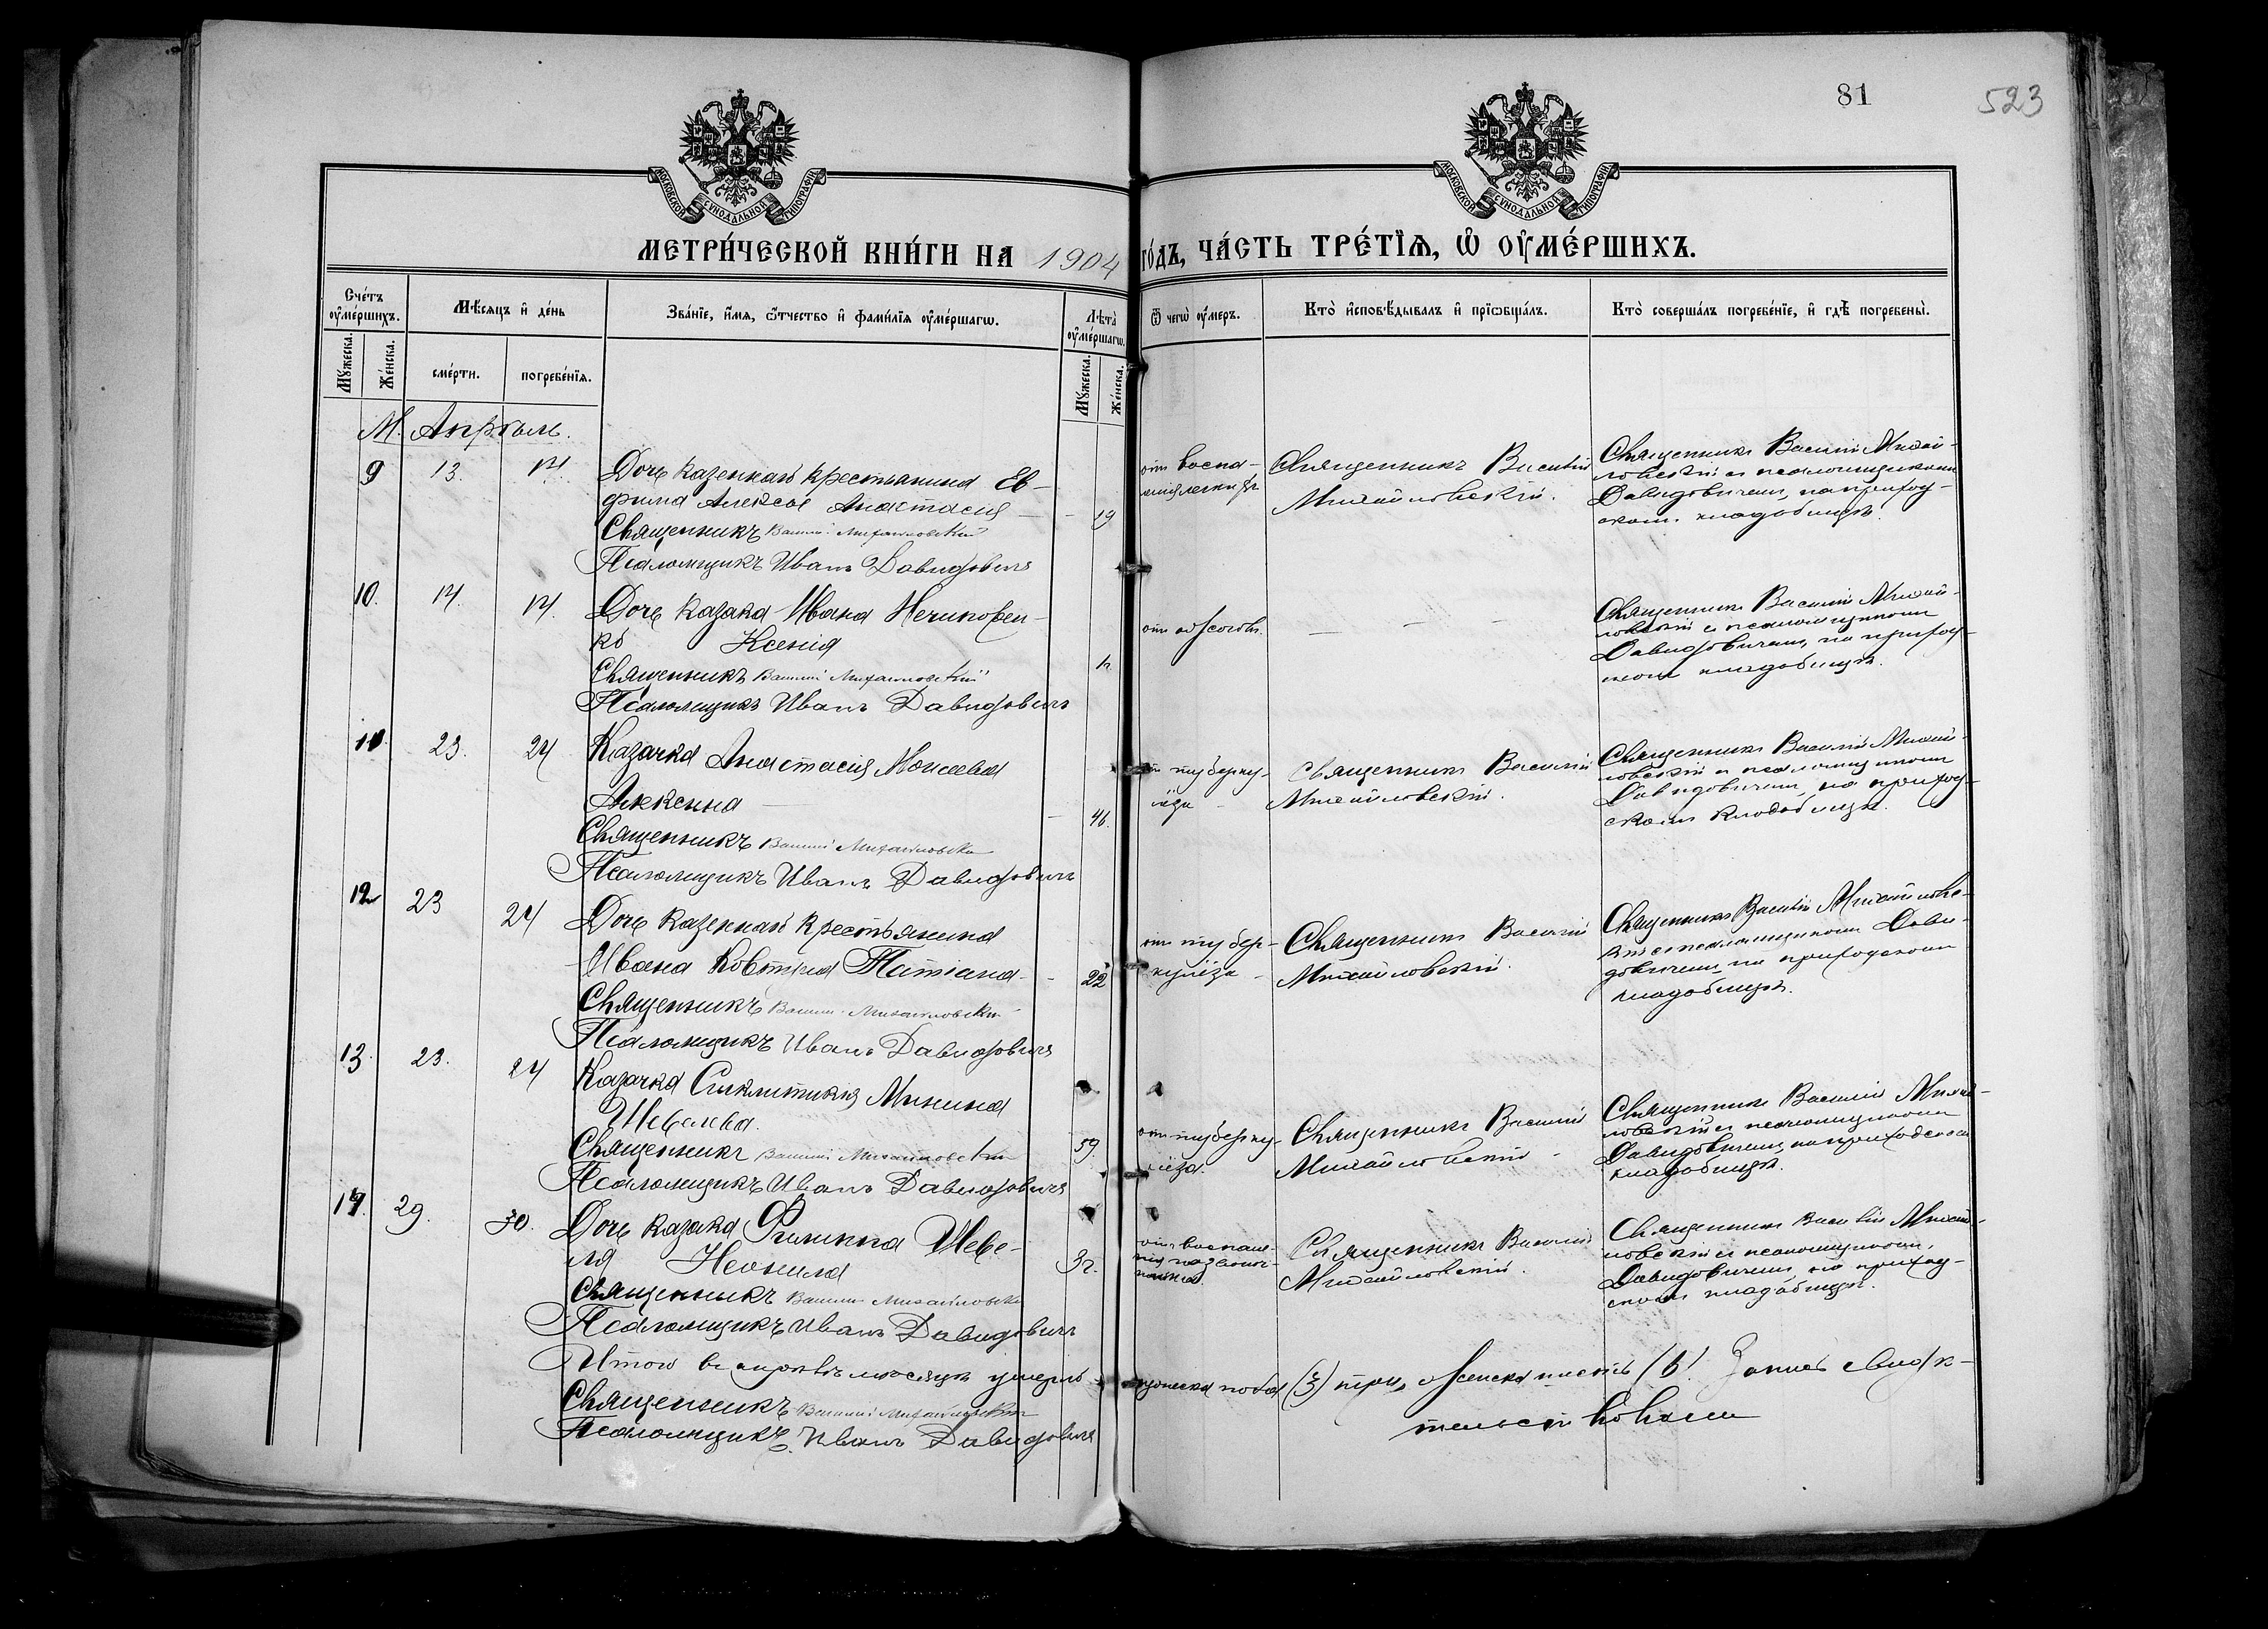 81
523
МОСКОВСКОЙ СѴНОДАЛЬНОЙ ТИПОГРАФІИ
МОСКОВСКОЙ СѴНОДАЛЬНОЙ ТИПОГРАФІИ
МЕТРИ́ЧЕСКОЙ КНИ́ГИ НА 1904 ГО́ДЪ, ЧА́СТЬ ТРЕ́ТЇѦ, Ѡ҆ ОУ҆МЕ́РШИХЪ.
Сче́тъ оу҆ме́ршихъ.
Мꙋ́жеска.
Же́нска.
Мѣ́сяцъ и҆ де́нь
сме́рти.
погребе́нїѧ.
Зва́нїе, и҆́мѧ, ѻ҆́тчество и҆ фами́лїѧ оу҆ме́ршагѡ.
Лѣ́та оу҆ме́ршагѡ.
Мꙋ́жеска.
Же́нска.
Ѿ чегѡ̀ оу҆́меръ.
Кто̀ и҆сповѣ́дывалъ и҆ прїѡбща́лъ.
Кто̀ соверша́лъ погребе́нїе, и҆ гдѣ̀ погребены̀.
М. Апрѣль.
9 13. 14. Дочь казеннаго крестьянина Ев-
фима Алексы Анастасія 19
Священникъ Василій Михайловскій
Псаломщикъ Иванъ Давидовичъ
от воспа-
ленія легкихъ
Священникъ Василій
Михайловскій.
Священникъ Василій Михай-
ловскій съ псаломщикомъ
Давидовичемъ, на приход-
скомъ кладбищѣ.
10. 14. 14. Дочь казака Ивана Нечипорен-
ко Ксенія
Священникъ Василій Михайловскій
Псаломщикъ Иванъ Давидовичъ
Священникъ Василій Михай-
ловскій съ псаломщикомъ
Давидовичемъ, на приход-
скомъ кладбищѣ.
11. 23. 24 Казачка Анастасія Моисеева
46.
Священникъ Василій Михайловскій
Псаломщикъ Иванъ Давидовичъ
от туберку-
лёза
Священникъ Василій
Михайловскій.
Священникъ Василій Михай-
ловскій съ псаломщикомъ
Давидовичемъ, на приход-
скомъ кладбищѣ.
12 23 24 Дочь казеннаго крестьянина
Ивана Ковтуна Татіана 22
Священникъ Василій Михайловскій
Псаломщикъ Иванъ Давидовичъ
от тубер-
кулёза
Священникъ Василій
Михайловскій.
Священникъ Василій Михайловс-
кій съ псаломщикомъ Дави-
довичемъ, на приходскомъ
кладбищѣ.
13. 23. 24 Казачка Синклитикія Минина
Шевелева. 59.
Священникъ Василій Михайловскій
Псаломщикъ Иванъ Давидовичъ
от туберку-
лёза.
Священникъ Василій
Михайловскій
Священникъ Василій Михай-
ловскій съ псаломщикомъ
Давидовичемъ, на приходскомъ
кладбищѣ.
14. 29. 30. Дочь казака Филиппа Шеве-
ля Неонила 3 г.
Священникъ Василій Михайловскій
Псаломщикъ Иванъ Давидовичъ
Священникъ Василій
Михайловскій.
Священникъ Василій Михай-
ловскій съ псаломщикомъ
Давидовичемъ, на приход-
скомъ кладбищѣ.
Итого въ апрѣлѣ мѣсяцѣ умерло мужеска пола (3) три, женска шесть (6). Запись свидѣ-
тельствовали
Священникъ Василій Михайловскій
Псаломщикъ Иванъ Давидовичъ